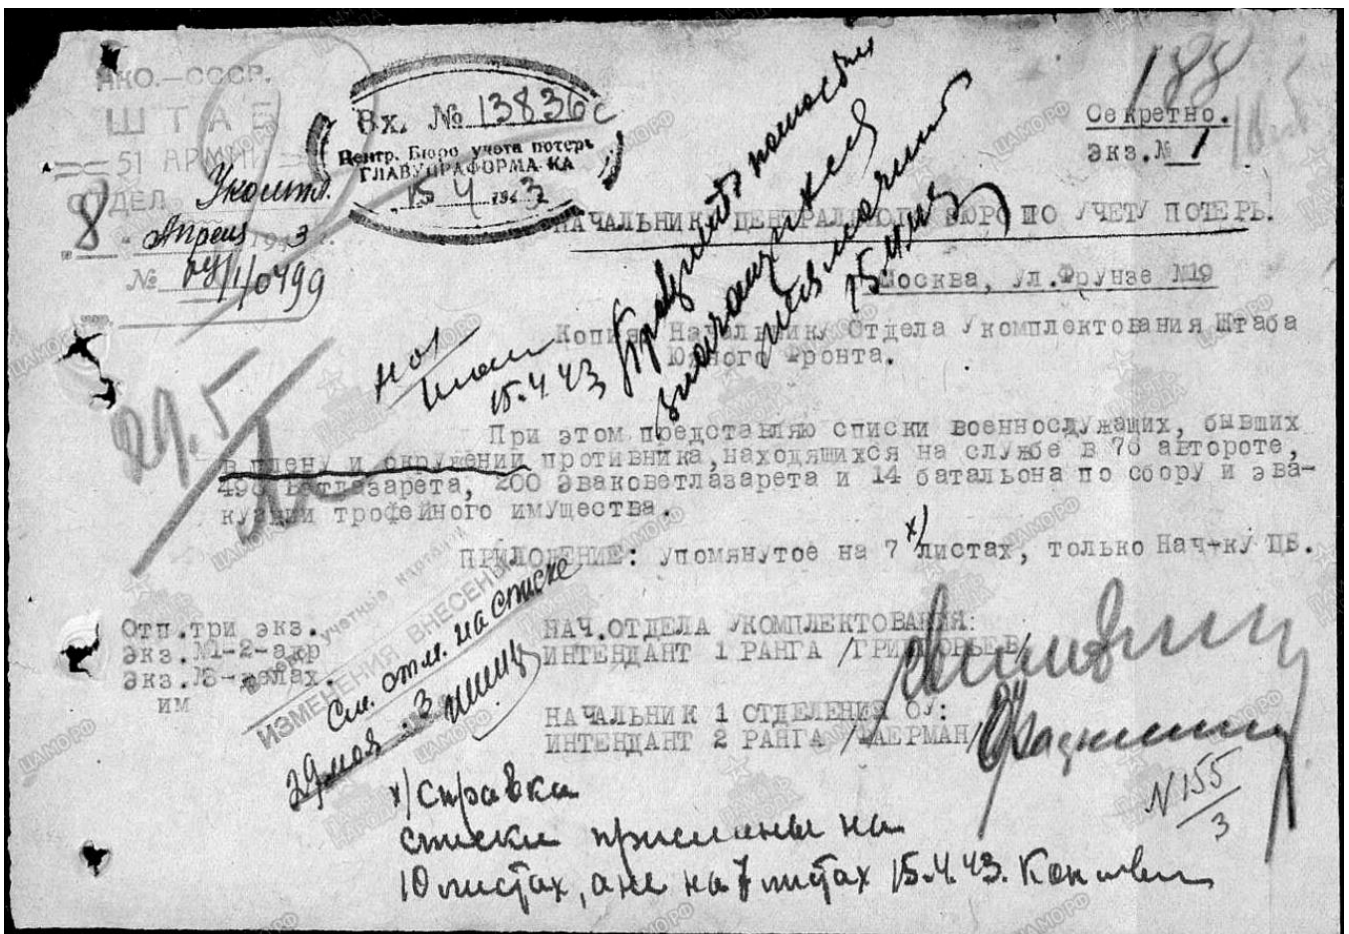 188
НКО.—СССР.
ШТАБ
51 АРМИИ
ОТДЕЛ Укомпл.
"8" Апреля 1943 г.
№ /1/0499
Вх. № 13836с
Центр. Бюро учета потерь
ГЛАВУПРАФОРМА КА
15 4 1943
Секретно.
Экз.№ 1
НАЧАЛЬНИКУ ЦЕНТРАЛЬНОГО БЮРО ПО УЧЕТУ ПОТЕРЬ.
Москва, ул.Фрунзе №19
Копия: Начальнику Отдела Укомплектования Штаба
Южного Фронта.
15.4.43
29.5
При этом представляю списки военнослужащих, бывших
в плену и окружении противника,находящихся на службе в 76 автороте,
496 ветлазарета, 200 Эваковетлазарета и 14 батальона по сбору и эва-
куации трофейного имущества.
ПРИЛОЖЕНИЕ: упомянутое на 7 х) листах, только Нач-ку ЦБ.
Отп.три экз.
Экз.№1-2-адр
Экз.№3-делах.
им
НАЧ.ОТДЕЛА УКОМПЛЕКТОВАНИЯ:
ИНТЕНДАНТ 1 РАНГА /ГРИГОРЬЕВ/
НАЧАЛЬНИК 1 ОТДЕЛЕНИЯ ОУ:
ИНТЕНДАНТ 2 РАНГА /ФАЕРМАН/
учетные карточки
ИЗМЕНЕНИЯ ВНЕСЕНЫ
См. отм. на списке
29 мая 3
N 155/3
х) Справка
списки присланы на
10 листах, а не на 7 листах 15.4.43.